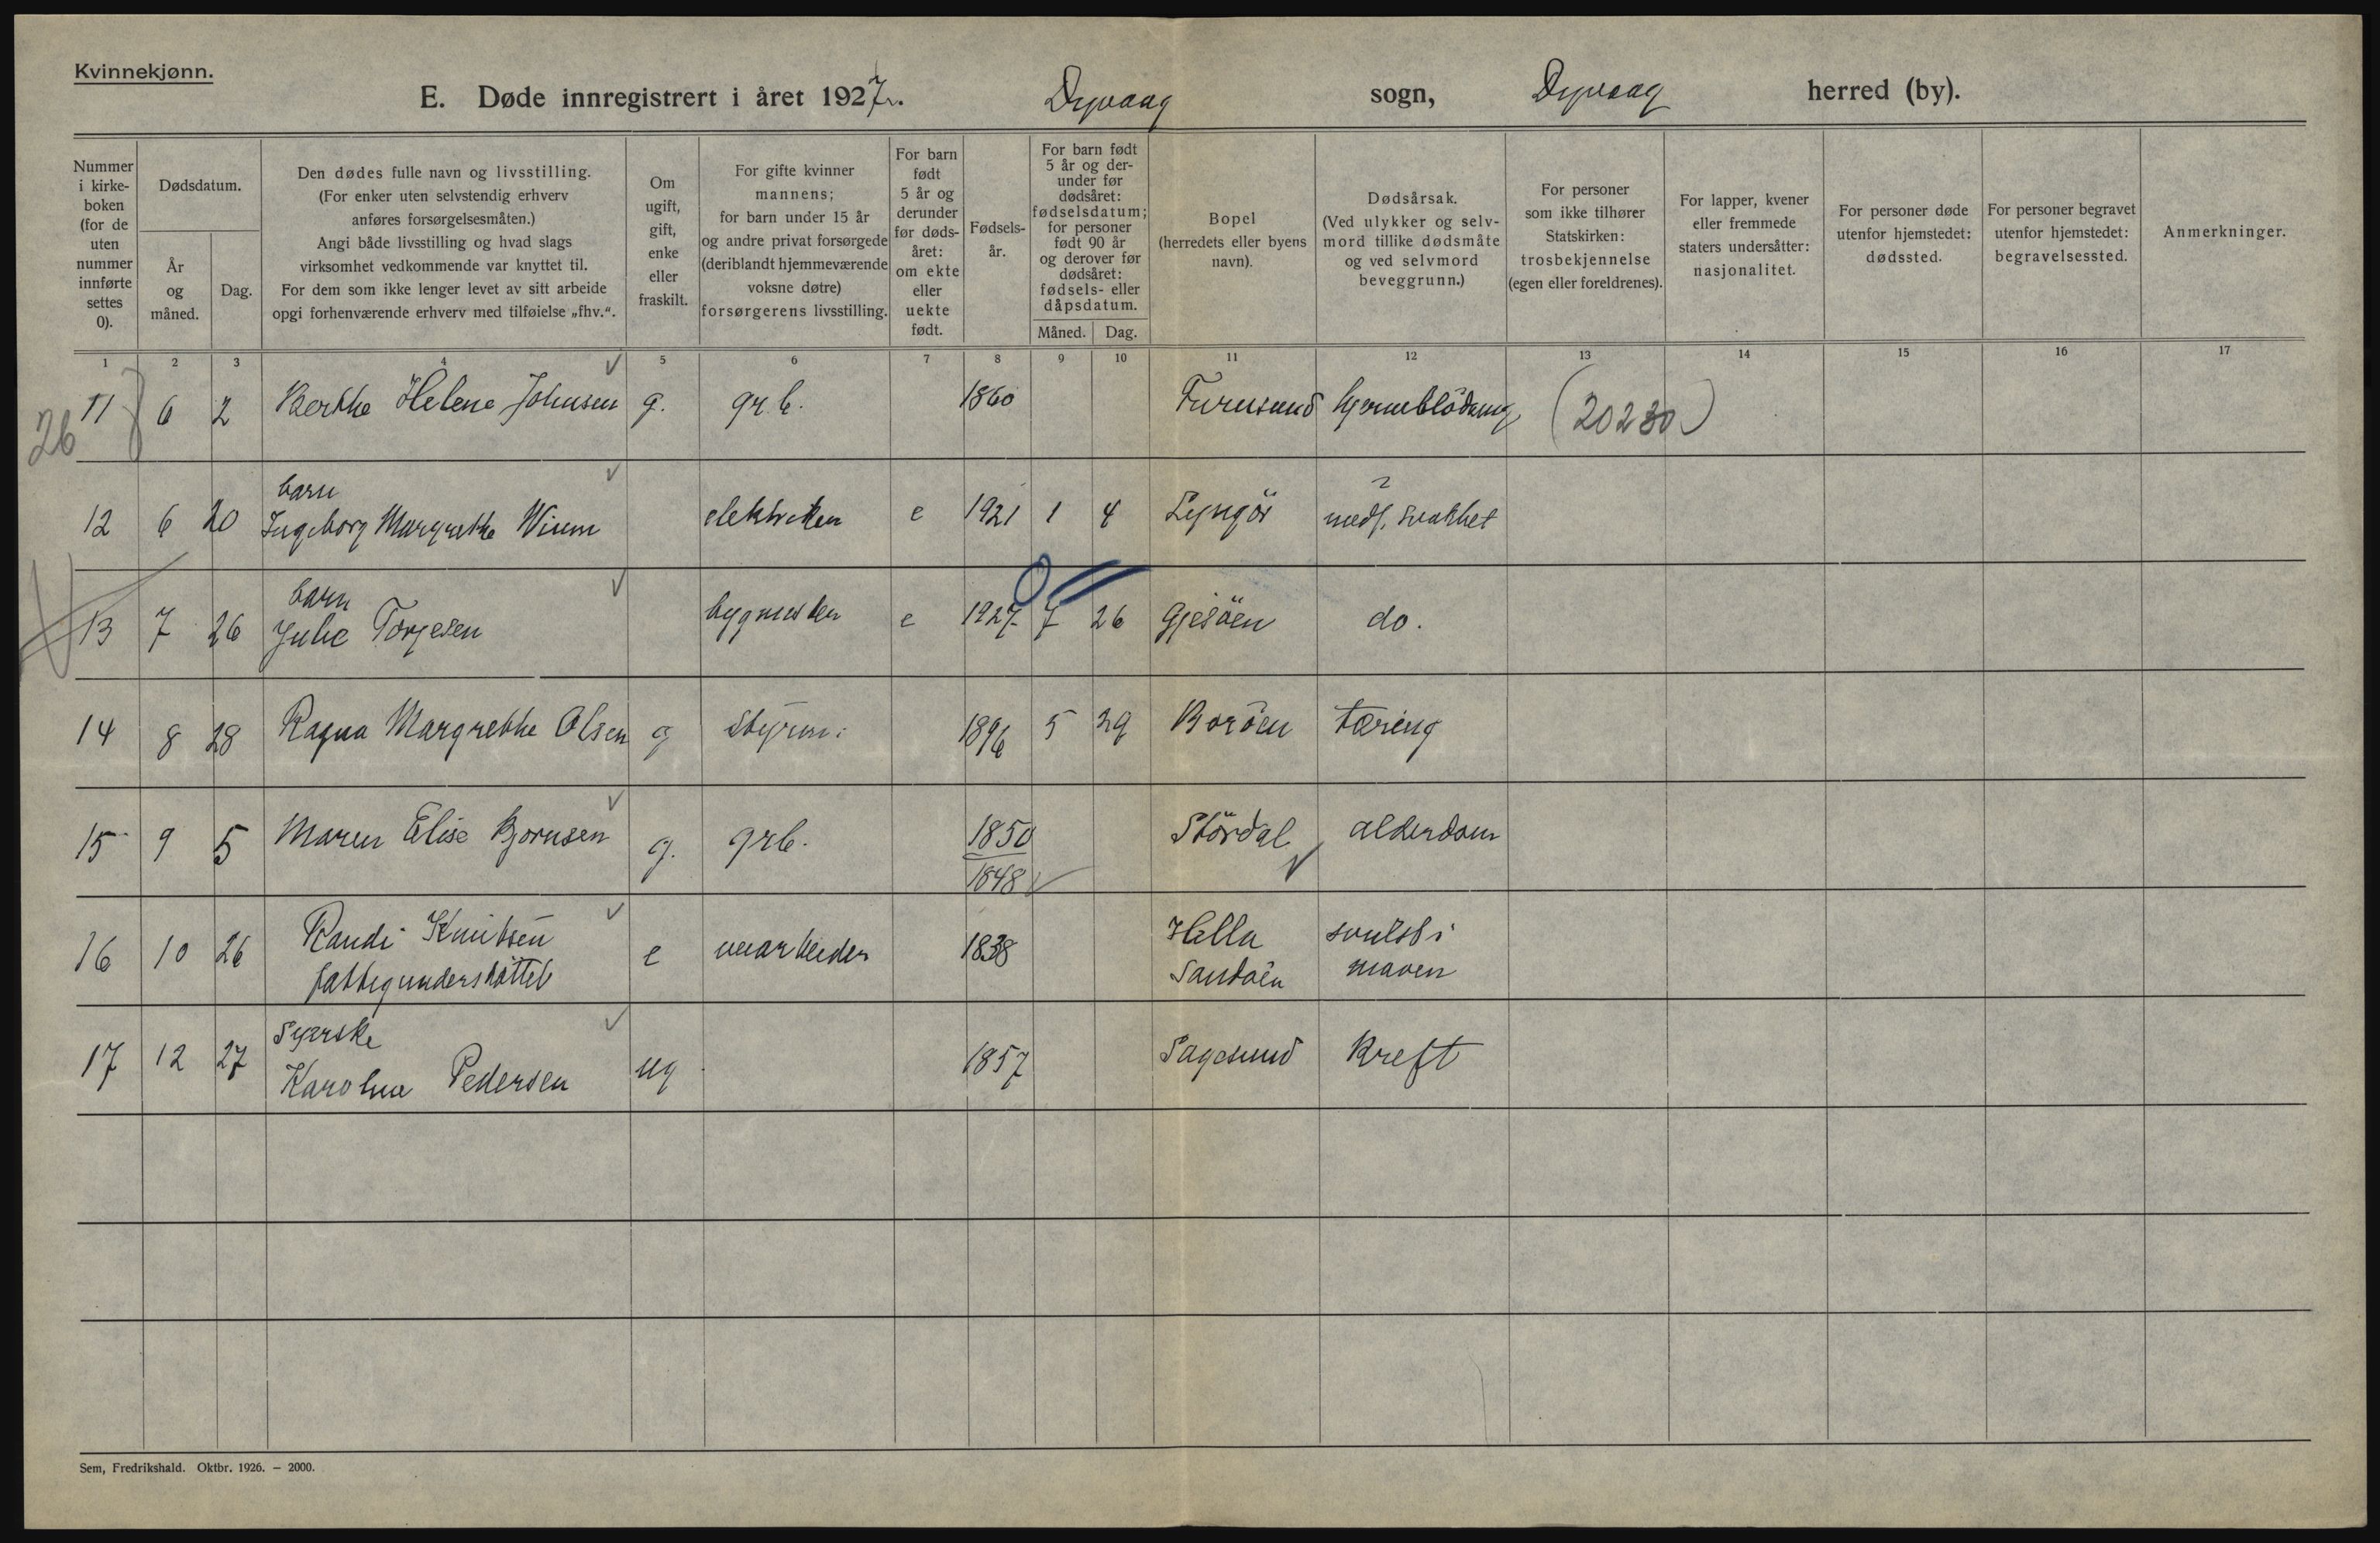 Kvinnekjønn.
E. Døde innregistrert i året 1927. Dyvaag sogn, Dyvaag herred (by).
Nummer i kirke-boken (for de uten nummer innførte settes 0).
Dødsdatum.
År og måned.
Dag.
Den dødes fulle navn og livsstilling.
(For enker uten selvstendig erhverv
anføres forsørgelsesmåten.)
Angi både livsstilling og hvad slags
virksomhet vedkommende var knyttet til.
For dem som ikke lenger levet av sitt arbeide
opgi forhenværende erhverv med tilføielse „fhv.“.
Om ugift, gift, enke eller fraskilt.
For gifte kvinner
mannens;
for barn under 15 år
og andre privat forsørgede
(deriblandt hjemmeværende
voksne døtre)
forsørgerens livsstilling.
For barn født 5 år og derunder før døds-året: om ekte eller uekte født.
Fødsels-år.
For barn født 5 år og der-under før dødsåret: fødselsdatum; for personer født 90 år og derover før dødsåret: fødsels- eller dåpsdatum.
Måned. Dag.
Bopel
(herredets eller byens
navn).
Dødsårsak.
(Ved ulykker og selv-
mord tillike dødsmåte
og ved selvmord
beveggrunn.)
For personer
som ikke tilhører
Statskirken:
trosbekjennelse
(egen eller foreldrenes).
For lapper, kvener
eller fremmede
staters undersåtter:
nasjonalitet.
For personer døde
utenfor hjemstedet:
dødssted.
For personer begravet
utenfor hjemstedet:
begravelsessted.
Anmerkninger.
1 2 3 4 5 6 7 8 9 10 11 12 13 14 15 16 17
26
11 6 2 Berthe Helene Johnsen g. grb. 1860 Furusund hjerneblödning (20230)
barn
12 6 20 Ingeborg Margrethe Wium elektriker e 1921 1 4 Lyngör medf. svakhet
barn
13 7 26 Julie Torjesen bygmester e 1927 7 26 Gjesöen do.
14 8 28 Ragna Margrethe Olsen g styrm: 1896 5 29 Boröen tæring
15 9 5 Maren Elise Bjornsen g. grb. 1850 Stördal alderdom
1848
16 10 26 Randi Knutsen e 1838 Hella svulst i
fattigunderstöttet Sandöen maven
Syerske
17 12 27 Karoline Pedersen ug 1857 Sagesund Kreft
Sem, Fredrikshald. Oktbr. 1926. – 2000.